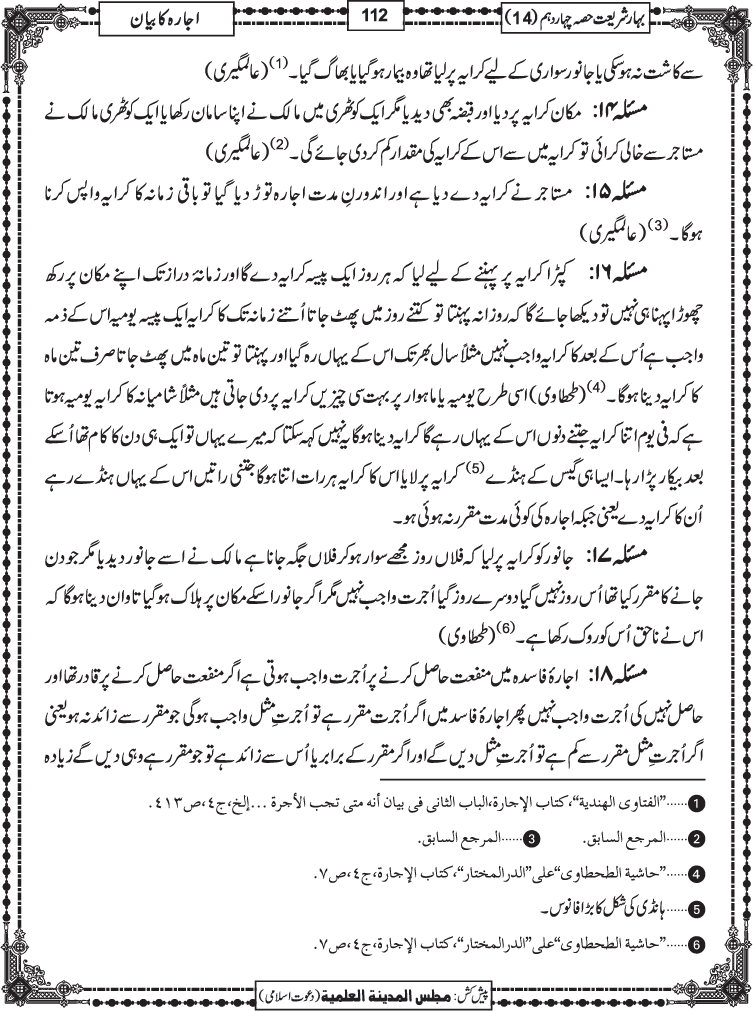 بہارِ شریعت حصہ چہاردہم (14)
112
اجارہ کا بیان
سے کاشت نہ ہوسکی یا جانور سواری کے لیے کرایہ پر لیا تھا وہ بیمار ہوگیا یا بھاگ گیا۔ (1) (عالمگیری)
مسئلہ ۱۴: مکان کرایہ پر دیا اور قبضہ بھی دیدیا مگر ایک کوٹھری میں مالک نے اپنا سامان رکھا یا ایک کوٹھری مالک نے
مستاجر سے خالی کرائی تو کرایہ میں سے اس کے کرایہ کی مقدار کم کردی جائے گی۔ (2) (عالمگیری)
مسئلہ ۱۵: مستاجر نے کرایہ دے دیا ہے اور اندورنِ مدت اجارہ توڑ دیا گیا تو باقی زمانہ کا کرایہ واپس کرنا
ہوگا۔ (3) (عالمگیری)
مسئلہ ۱۶: کپڑا کرایہ پر پہننے کے لیے لیا کہ ہر روز ایک پیسہ کرایہ دے گا اور زمانۂ دراز تک اپنے مکان پر رکھ
چھوڑا پہنا ہی نہیں تو دیکھا جائے گا کہ روزانہ پہنتا تو کتنے روز میں پھٹ جاتا اُتنے زمانہ تک کا کرایہ ایک پیسہ یومیہ اس کے ذمہ
واجب ہے اُس کے بعد کا کرایہ واجب نہیں مثلاً سال بھر تک اس کے یہاں رہ گیا اور پہنتا تو تین ماہ میں پھٹ جاتا صرف تین ماہ
کا کرایہ دینا ہوگا۔ (4) (طحطاوی) اسی طرح یومیہ یا ماہوار پر بہت سی چیزیں کرایہ پر دی جاتی ہیں مثلاً شامیانہ کا کرایہ یومیہ ہوتا
ہے کہ فی یوم اتنا کرایہ جتنے دنوں اس کے یہاں رہے گا کرایہ دینا ہوگا یہ نہیں کہہ سکتا کہ میرے یہاں تو ایک ہی دن کا کام تھا اُسکے
بعد بیکار پڑا رہا۔ ایسا ہی گیس کے ہنڈے (5) کرایہ پر لایا اس کا کرایہ ہر رات اتنا ہوگا جتنی راتیں اس کے یہاں ہنڈے رہے
اُن کا کرایہ دے یعنی جبکہ اجارہ کی کوئی مدت مقرر نہ ہوئی ہو۔
مسئلہ ۱۷: جانور کو کرایہ پر لیا کہ فلاں روز مجھے سوار ہوکر فلاں جگہ جانا ہے مالک نے اسے جانور دیدیا مگر جو دن
جانے کا مقرر کیا تھا اُس روز نہیں گیا دوسرے روز گیا اُجرت واجب نہیں مگر اگر جانور اسکے مکان پر ہلاک ہوگیا تاوان دینا ہوگا کہ
اس نے ناحق اُس کو روک رکھا ہے۔ (6) (طحطاوی)
مسئلہ ۱۸: اجارۂ فاسدہ میں منفعت حاصل کرنے پر اُجرت واجب ہوتی ہے اگر منفعت حاصل کرنے پر قادر تھا اور
حاصل نہیں کی اُجرت واجب نہیں پھر اجارۂ فاسد میں اگر اُجرت مقرر ہے تو اُجرتِ مثل واجب ہوگی جو مقرر سے زائد نہ ہو یعنی
اگر اُجرتِ مثل مقرر سے کم ہے تو اُجرتِ مثل دیں گے اور اگر مقرر کے برابر یا اُس سے زائد ہے تو جو مقرر ہے وہی دیں گے زیادہ
1 ......"الفتاوى الهندية"،كتاب الإجارة،الباب الثانى فى بيان أنه متى تجب الأجرة ...إلخ،ج٤،ص٤١٣.
2 ......المرجع السابق. 3 ......المرجع السابق.
4 ......"حاشية الطحطاوى"على"الدرالمختار"،كتاب الإجارة،ج٤،ص٧.
5 ......ہانڈی کی شکل کا بڑا فانوس۔
6 ......"حاشية الطحطاوى"على"الدرالمختار"،كتاب الإجارة،ج٤،ص٧.
پیش کش: مجلس المدينة العلمية (دعوت اسلامی)